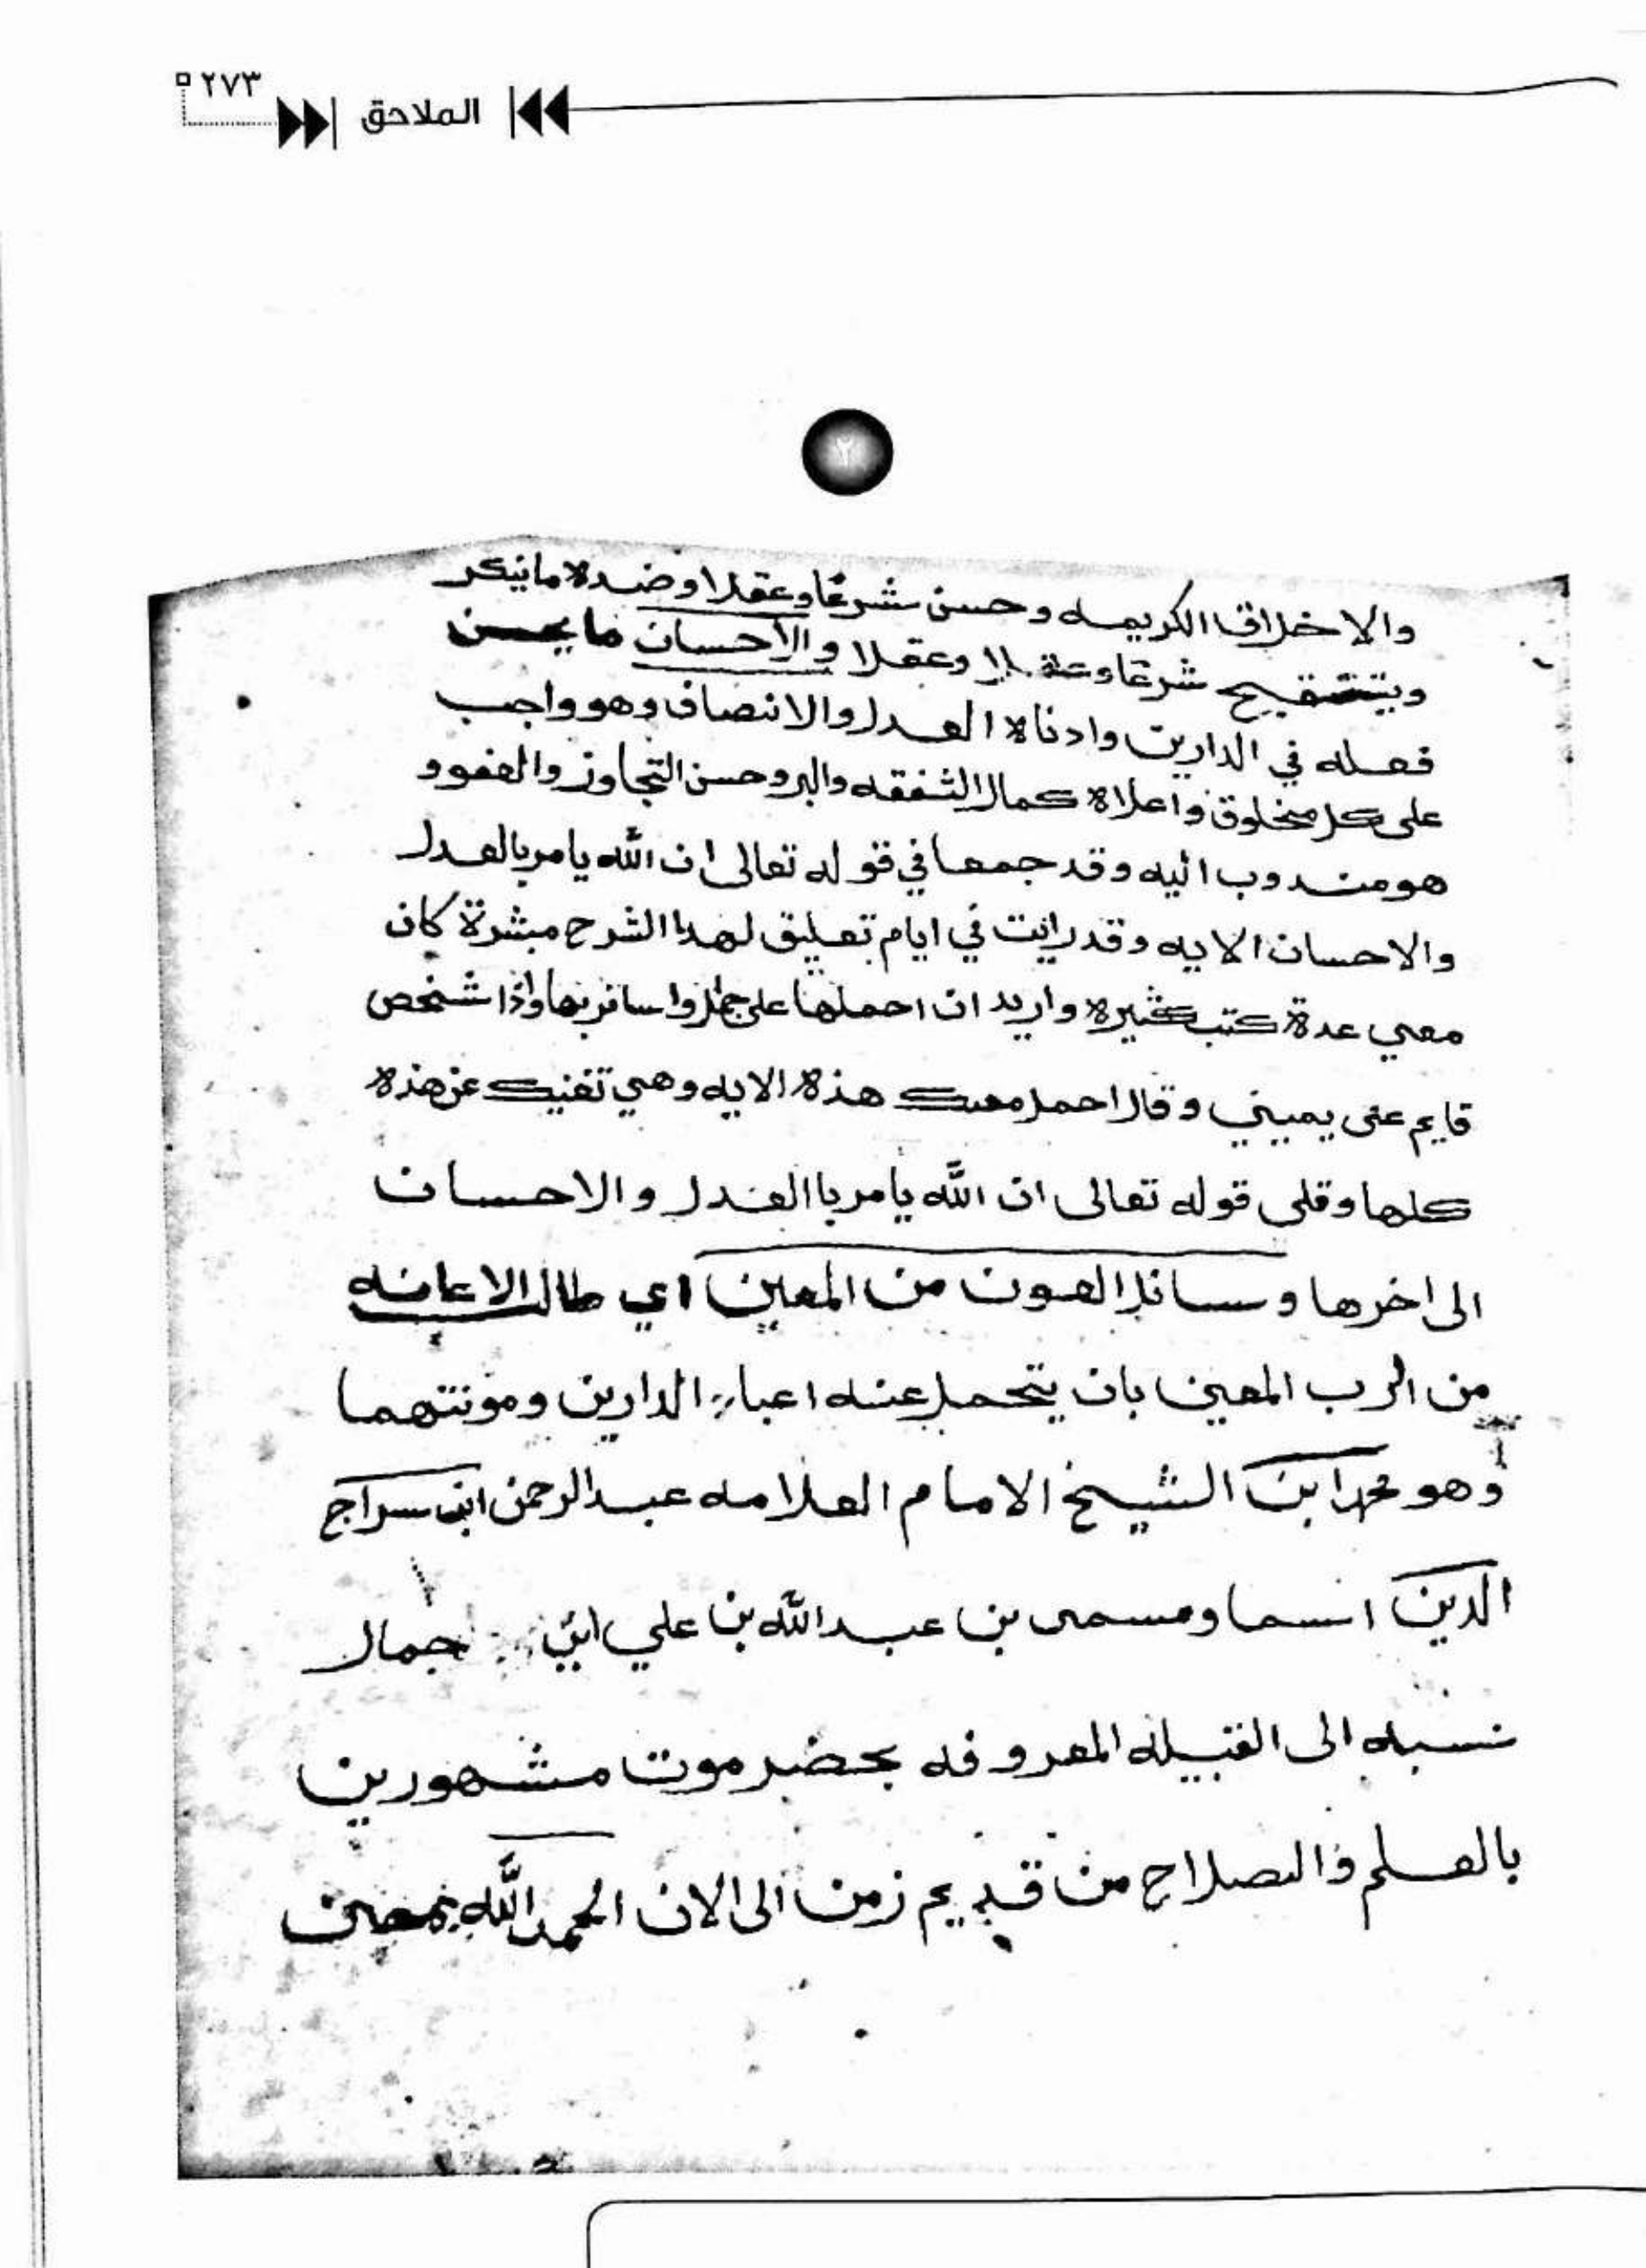 ٢٧٣
الملاحق
٢
والاخلاق الكريمه وحسن شرعا وعقلا وضده ما ينكر
ويستقبح شرعا وعقلا والاحسان ما يحسن
فعله في الدارين وادناه العدل والانصاف وهو واجب
على كل مخلوق واعلاه كمال الشفقه والبر وحسن التجاوز والعفو و
هو مندوب اليه وقد جمعا في قوله تعالى ان الله يامر بالعدل
والاحسان الايه وقد رايت في ايام تعليق لهدا الشرح مبشرة كان
معي عدة كتب كثيره واريد ان احملها على جمل واسافر بها واذا شخص
قايم عنى يميني وقال احمل معك هذه الايه وهي تغنيك عن هذه
كلها وقلى قوله تعالى ان الله يامر باالعدل والاحسان
الى اخرها وسائل العون من المعين اي طالب الاعانه
من الرب المعين بان يتحمل عنه اعباء الدارين ومونتهما
وهو محمد ابن الشيخ الامام العلامه عبد الرحمن ابن سراج
الدين اسما ومسمى بن عبد الله بن علي ابن جمال
نسبه الى القبيله المعروفه بحضرموت مشهورين
بالعلم والصلاح من قديم زمن الى الان الحمد لله